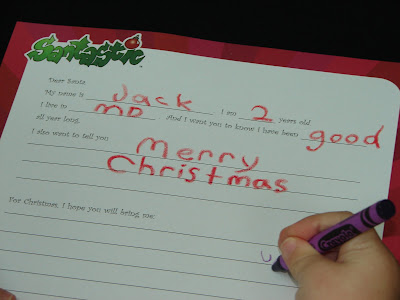 Santastic
Dear Santa
My name is Jack I am 2 years old
I live in MD And I want you to know I have been good
all year long.
I also want to tell you Merry
Christmas
For Christmas, I hope you will bring me: